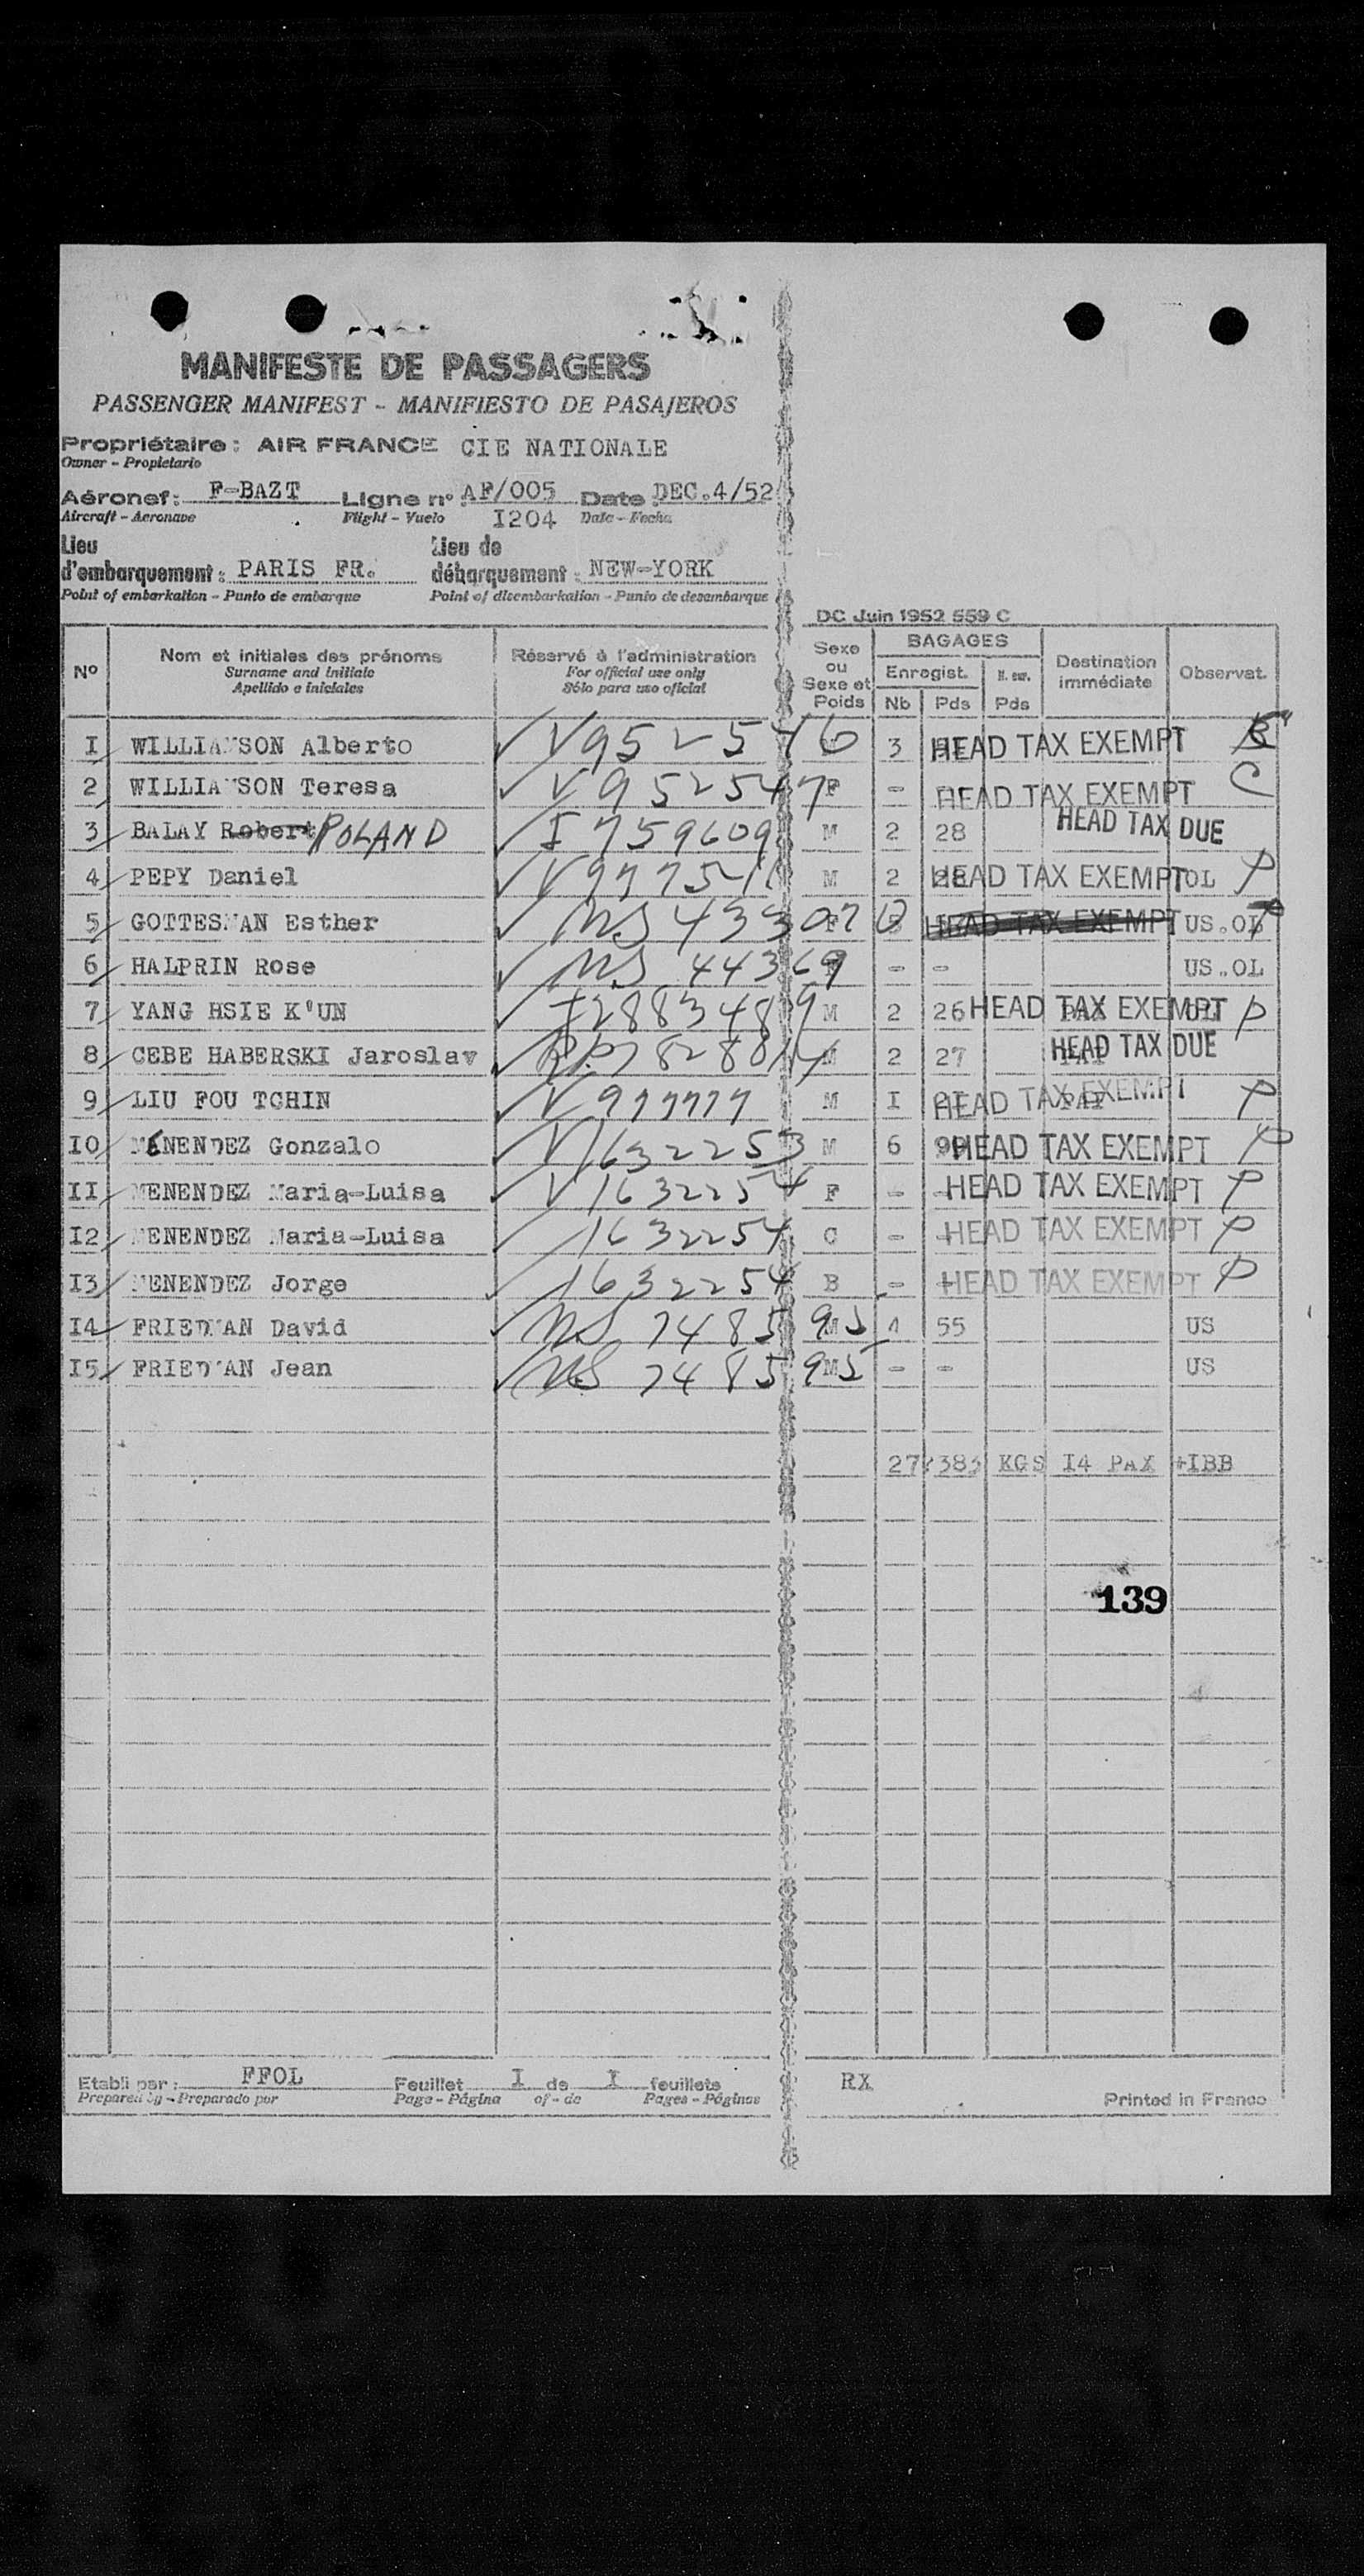 MANIFESTE DE PASSAGERS
PASSENGER MANIFEST - MANIFIESTO DE PASAJEROS
Propriétaire : AIR FRANCE CIE NATIONALE
Owner - Propietario
Aéronef : F-BAZT Ligne nº AF/005 Date : DEC.4/52
Aircraft - Aeronave Flight - Vuelo I204 Date - Fecha
Lieu d'embarquement : PARIS FR. Lieu de débarquement : NEW-YORK
Point of embarkation - Punto de embarque Point of disembarkation - Punto de desembarque
DC Juin 1952 559 C
Nº Nom et initiales des prénoms Réservé à l'administration Sexe ou Sexe et Poids BAGAGES Destination immédiate Observat.
Surname and initiale For official use only Enregist.
Apellido e iniciales Sólo para uso oficial Nb Pds Pds
I WILLIAMSON Alberto V952546 3 HEAD TAX EXEMPT
2 WILLIAMSON Teresa V952547 F - HEAD TAX EXEMPT C
3 BALAY Robert ROLAND I759609 M 2 28 HEAD TAX DUE
4 PEPY Daniel M 2 28 HEAD TAX EXEMPT OL P
5 GOTTESMAN Esther F HEAD TAX EXEMPT US.OL
6 HALPRIN Rose 44369 - - US.OL
7 YANG HSIE K'UN M 2 26 HEAD TAX EXEMPT P
8 CEBE HABERSKI Jaroslav M 2 27 HEAD TAX DUE
9 LIU FOU TCHIN M I HEAD TAX EXEMPT P
I0 MENENDEZ Gonzalo V1632253 M 6 HEAD TAX EXEMPT P
II MENENDEZ Maria-Luisa V1632254 F - HEAD TAX EXEMPT P
I2 MENENDEZ Maria-Luisa 1632254 C - - HEAD TAX EXEMPT P
I3 MENENDEZ Jorge 1632254 B - - HEAD TAX EXEMPT P
I4 FRIEDMAN David 748595 M 4 55 US
I5 FRIEDMAN Jean 748595 M - - US
27/383 KGS I4 PAX +IBB
139
Etabli par : FFOL Feuillet I de I feuillets RX
Prepared by - Preparado por Page - Página of - de Pages - Páginas Printed in France